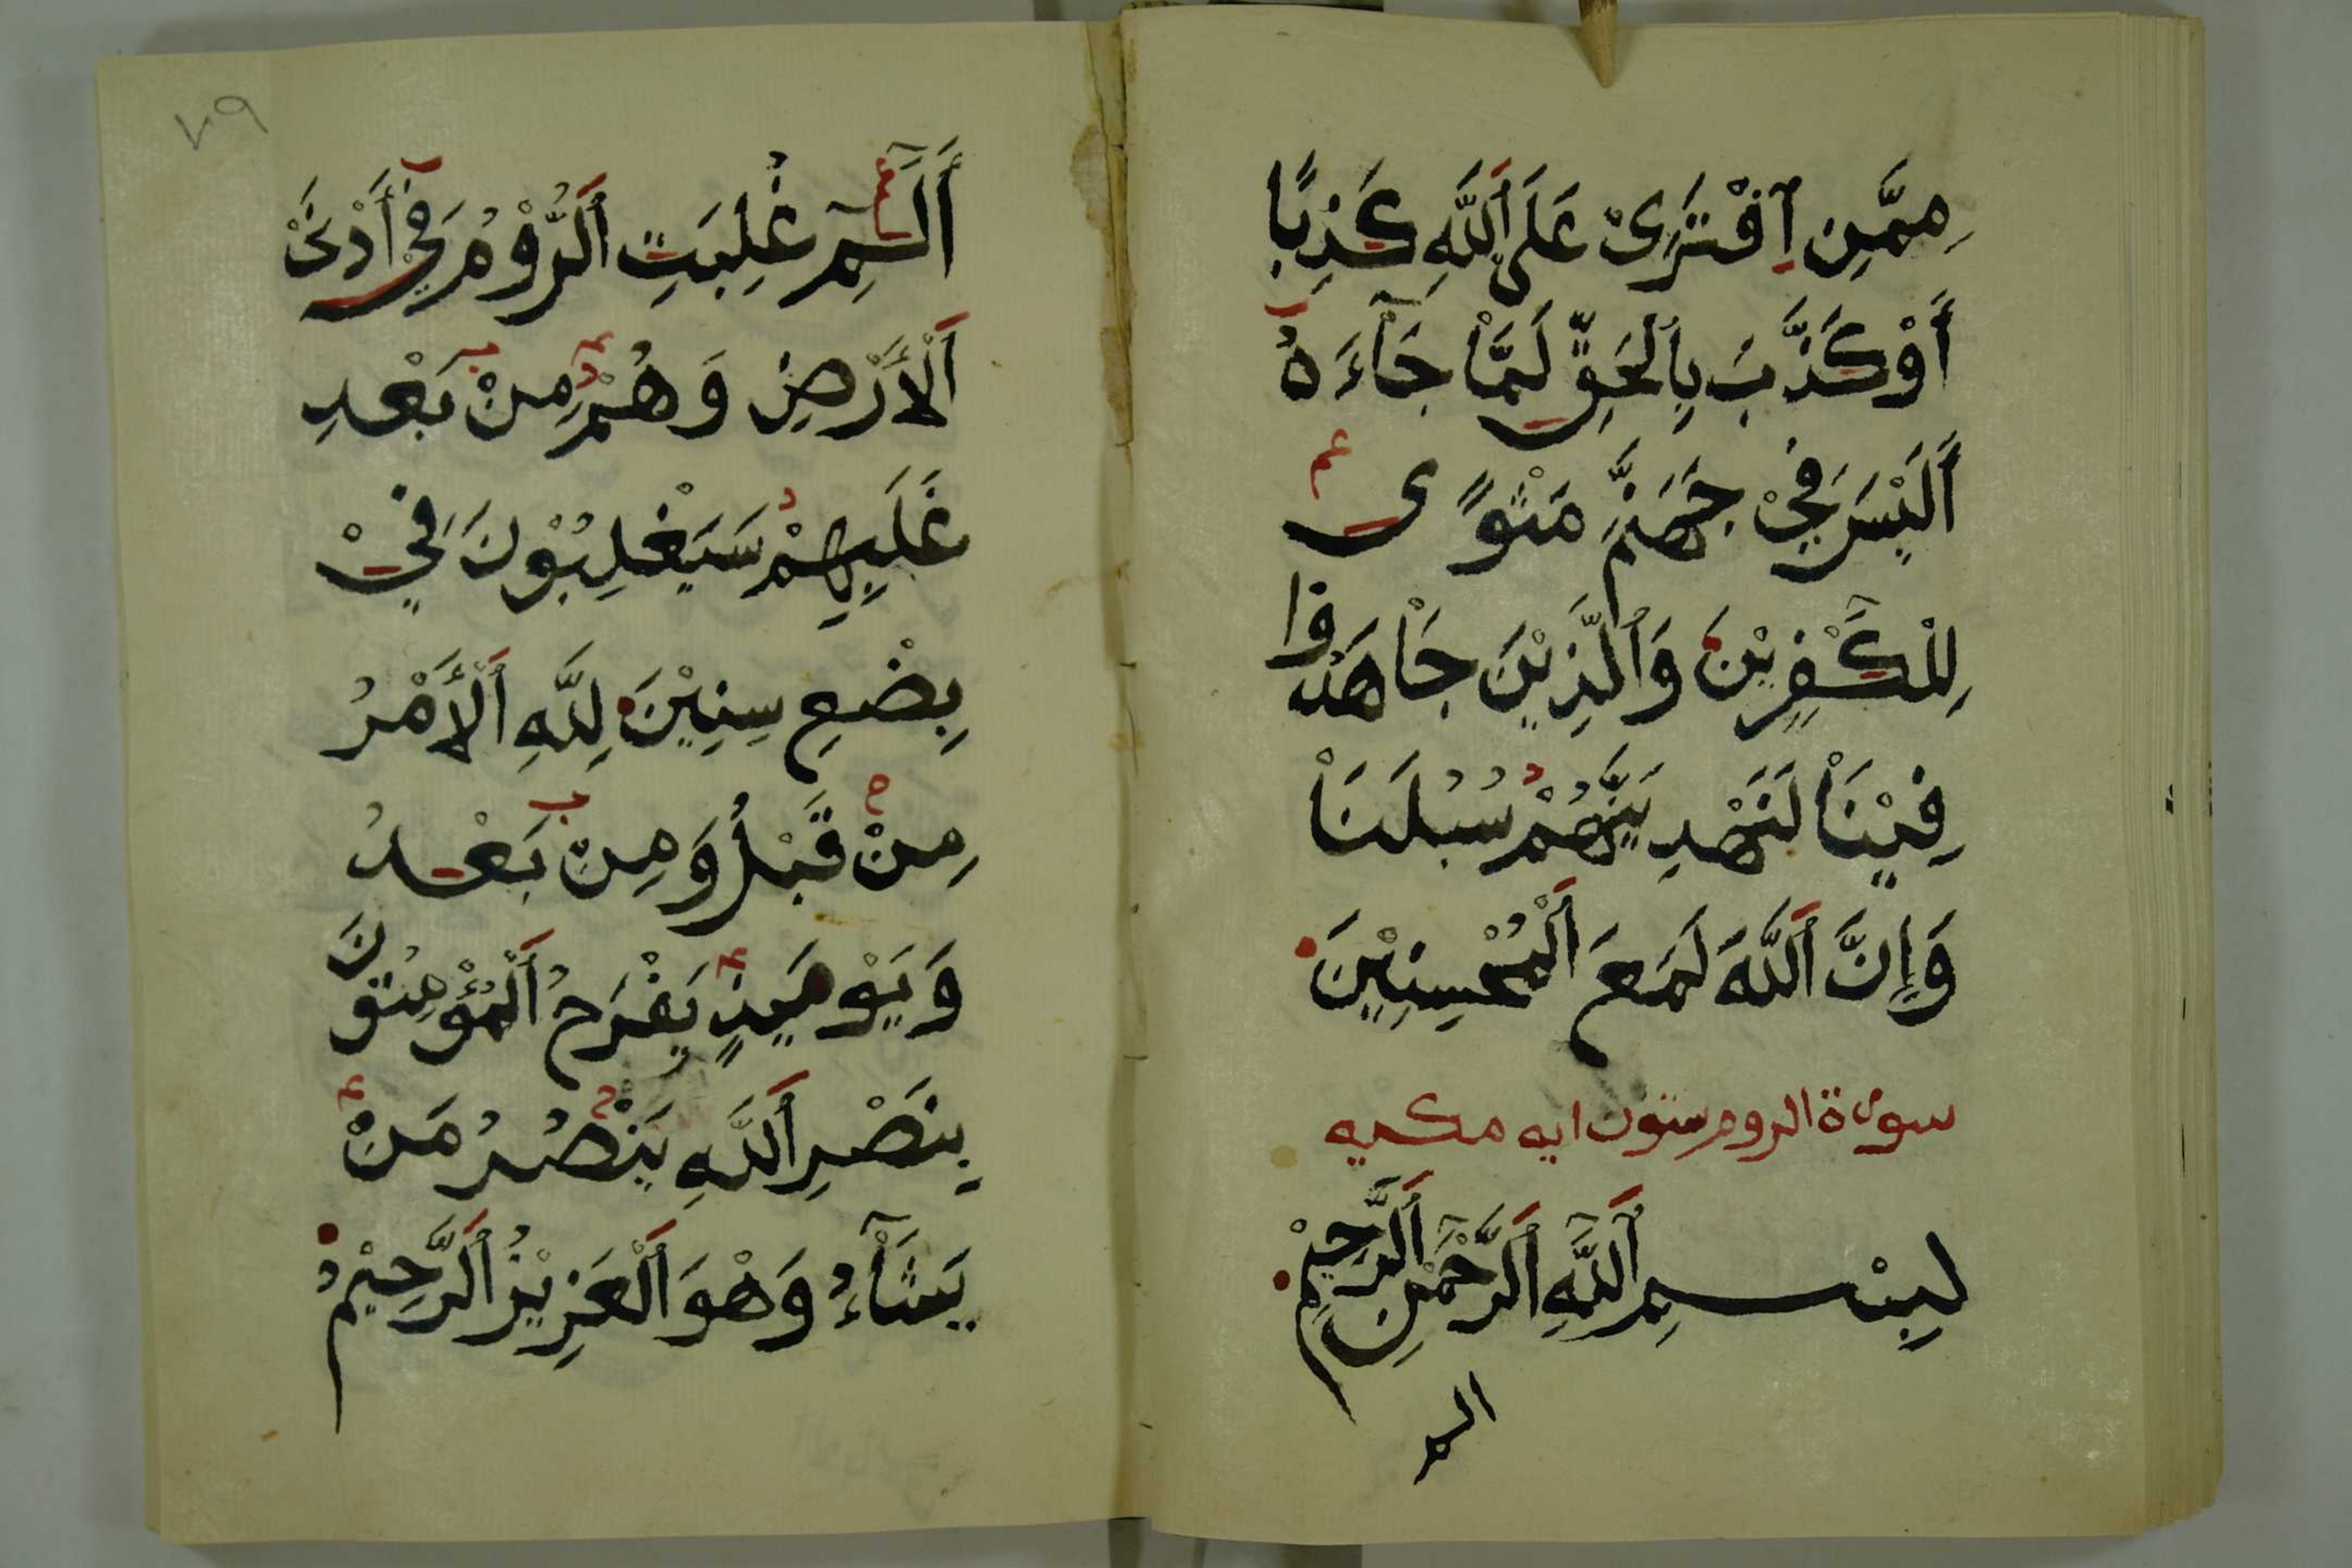 مِمَّنِ اِفْتَرَىٰ عَلَى اَللَّهِ كَذِبًا
أَوْ كَذَّبَ بِالْحَقِّ لَمَّا جَآءَهُ
أَلَيْسَ فِيْ جَهَنَّمَ مَثْوًى
لِلْكَٰفِرِيْنَ وَالَّذِيْنَ جَاهَدُوا
فِيْنَا لَنَهْدِيَنَّهُمْ سُبُلَنَا
وَإِنَّ اَللَّهَ لَمَعَ اَلْمُحْسِنِيْنَ
سورة الروم ستون ايه مكيه
بِسْمِ اَللَّهِ اَلرَّحْمٰنِ اَلرَّحِيْمِ
الم
٧٩
أَلَٓمِّٓ غُلِبَتِ اَلرُّوْمُ فِيْ أَدْنَىٰ
اَلْأَرْضِ وَهُمْ مِنْ بَعْدِ
غَلَبِهِمْ سَيَغْلِبُوْنَ فِيْ
بِضْعِ سِنِيْنَ لِلَّهِ اَلْأَمْرُ
مِنْ قَبْلُ وَمِنْ بَعْدُ
وَيَوْمَئِذٍ يَفْرَحُ اَلْمُؤْمِنُوْنَ
بِنَصْرِ اَللَّهِ يَنْصُرُ مَنْ
يَشَآءُ وَهْوَ اَلْعَزِيْزُ اَلرَّحِيْمُ